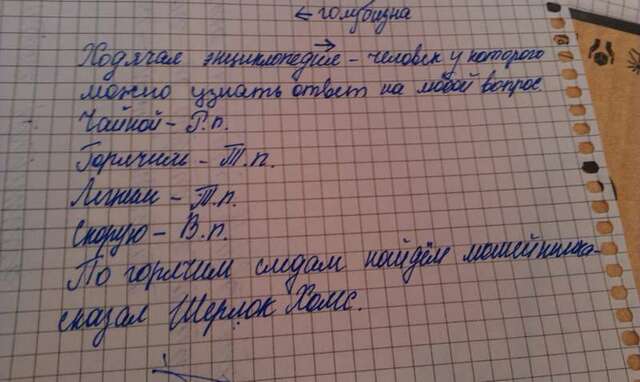 ← голубизна
Ходячая энциклопедия – человек у которого
можно узнать ответ на любой вопрос.
Чайной – Р.п.
Горячим – Т.п.
Легким – Т.п.
Скорую – В.п.
По горячим следам найдём мошейника-
сказал Шерлок Холмс.